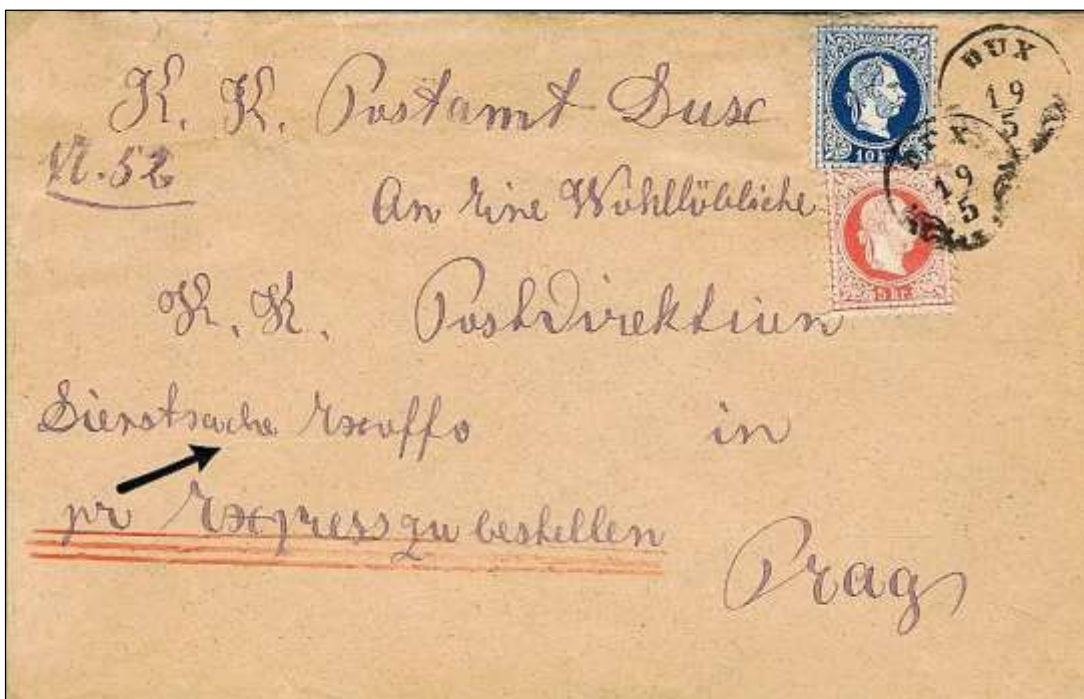 K. K. Postamt Dux
N. 52
An Eine Wohllöbliche
K. K. Postdirektion
Dienstsache Exoffo in
pr Express zu bestellen
Prag
10 kr.
5 kr.
DUX
19
5
DUX
19
5